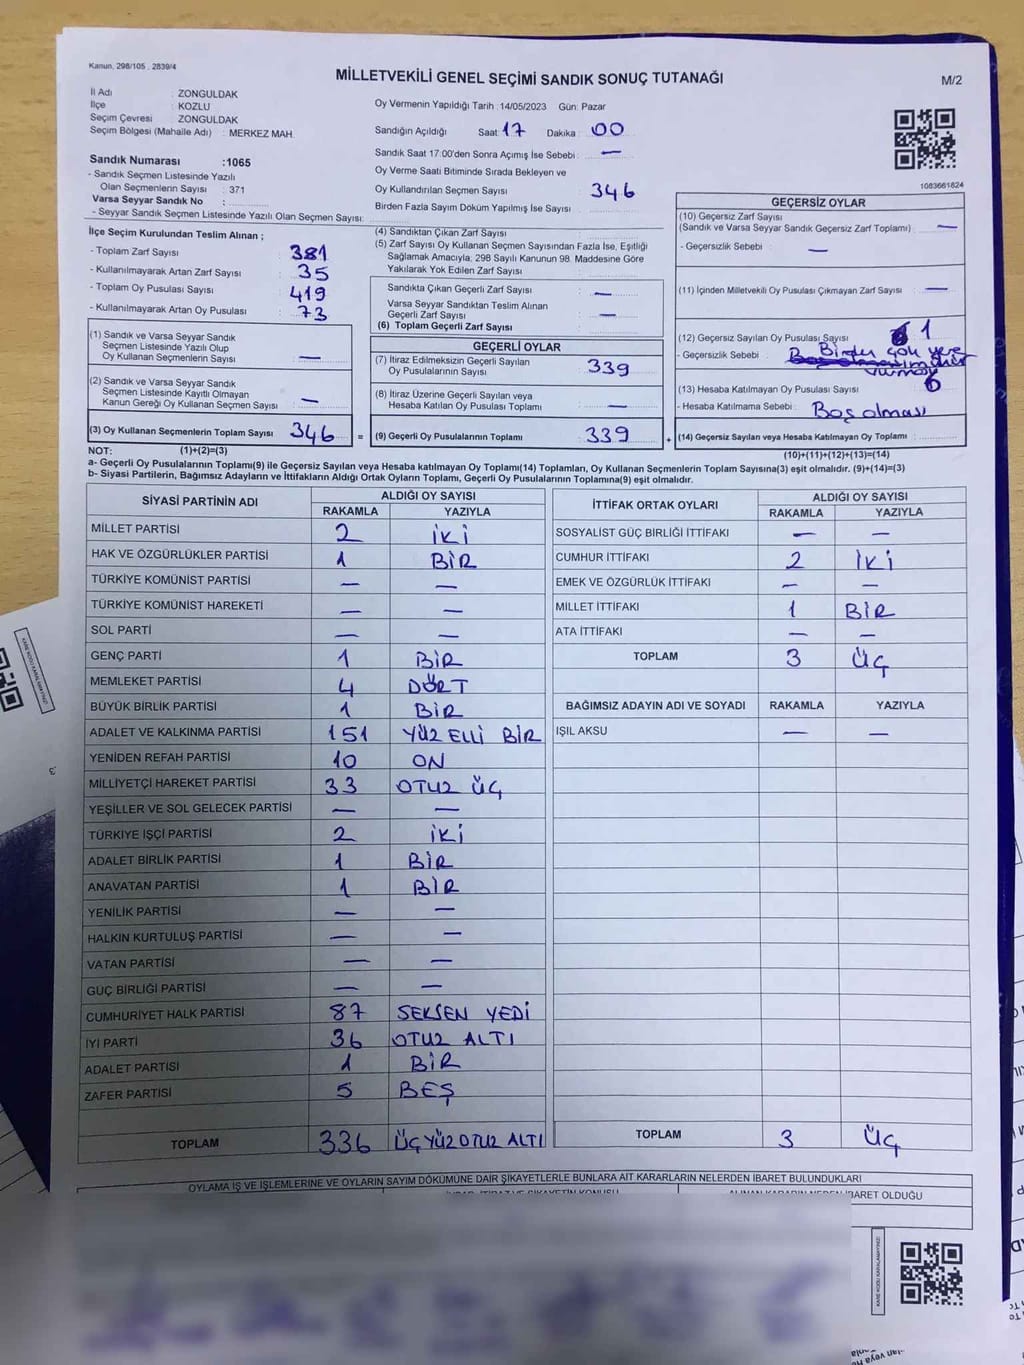 Kanun, 298/105 , 2839/4
MİLLETVEKİLİ GENEL SEÇİMİ SANDIK SONUÇ TUTANAĞI
M/2
İl Adı : ZONGULDAK
İlçe : KOZLU
Seçim Çevresi : ZONGULDAK
Seçim Bölgesi (Mahalle Adı) : MERKEZ MAH.
Sandık Numarası :1065
- Sandık Seçmen Listesinde Yazılı
Olan Seçmenlerin Sayısı : 371
Varsa Seyyar Sandık No :
- Seyyar Sandık Seçmen Listesinde Yazılı Olan Seçmen Sayısı:
Oy Vermenin Yapıldığı Tarih :14/05/2023 Gün: Pazar
Sandığın Açıldığı Saat: 17 Dakika : 00
Sandık Saat 17:00'den Sonra Açımış İse Sebebi : —
Oy Verme Saati Bitiminde Sırada Bekleyen ve
Oy Kullandırılan Seçmen Sayısı : 346
Birden Fazla Sayım Döküm Yapılmış İse Sayısı :
1083661824
İlçe Seçim Kurulundan Teslim Alınan ;
- Toplam Zarf Sayısı : 381
- Kullanılmayarak Artan Zarf Sayısı : 35
- Toplam Oy Pusulası Sayısı : 419
- Kullanılmayarak Artan Oy Pusulası : 73
(1) Sandık ve Varsa Seyyar Sandık
Seçmen Listesinde Yazılı Olup
Oy Kullanan Seçmenlerin Sayısı : —
(2) Sandık ve Varsa Seyyar Sandık
Seçmen Listesinde Kayıtlı Olmayan
Kanun Gereği Oy Kullanan Seçmen Sayısı : —
(3) Oy Kullanan Seçmenlerin Toplam Sayısı 346 =
(4) Sandıktan Çıkan Zarf Sayısı :
(5) Zarf Sayısı Oy Kullanan Seçmen Sayısından Fazla İse, Eşitliği
Sağlamak Amacıyla; 298 Sayılı Kanunun 98. Maddesine Göre
Yakılarak Yok Edilen Zarf Sayısı :
Sandıkta Çıkan Geçerli Zarf Sayısı : —
Varsa Seyyar Sandıktan Teslim Alınan
Geçerli Zarf Sayısı : —
(6) Toplam Geçerli Zarf Sayısı :
GEÇERLİ OYLAR
(7) İtiraz Edilmeksizin Geçerli Sayılan
Oy Pusulalarının Sayısı : 339
(8) İtiraz Üzerine Geçerli Sayılan veya
Hesaba Katılan Oy Pusulası Toplamı : —
(9) Geçerli Oy Pusulalarının Toplamı : 339 +
GEÇERSİZ OYLAR
(10) Geçersiz Zarf Sayısı
(Sandık ve Varsa Seyyar Sandık Geçersiz Zarf Toplamı) : —
- Geçersizlik Sebebi : —
(11) İçinden Milletvekili Oy Pusulası Çıkmayan Zarf Sayısı : —
(12) Geçersiz Sayılan Oy Pusulası Sayısı : 1
- Geçersizlik Sebebi : Birden çok yere
mühür
vurmak
(13) Hesaba Katılmayan Oy Pusulası Sayısı : 6
- Hesaba Katılmama Sebebi : Boş olması
(14) Geçersiz Sayılan veya Hesaba Katılmayan Oy Toplamı :
NOT: (1)+(2)=(3)
(10)+(11)+(12)+(13)=(14)
a- Geçerli Oy Pusulalarının Toplamı(9) ile Geçersiz Sayılan veya Hesaba katılmayan Oy Toplamı(14) Toplamları, Oy Kullanan Seçmenlerin Toplam Sayısına(3) eşit olmalıdır. (9)+(14)=(3)
b- Siyasi Partilerin, Bağımsız Adayların ve İttifakların Aldığı Ortak Oyların Toplamı, Geçerli Oy Pusulalarının Toplamına(9) eşit olmalıdır.
SİYASİ PARTİNİN ADI ALDIĞI OY SAYISI
RAKAMLA YAZIYLA
MİLLET PARTİSİ 2 İKİ
HAK VE ÖZGÜRLÜKLER PARTİSİ 1 BİR
TÜRKİYE KOMÜNİST PARTİSİ — —
TÜRKİYE KOMÜNİST HAREKETİ — —
SOL PARTİ — —
GENÇ PARTİ 1 BİR
MEMLEKET PARTİSİ 4 DÖRT
BÜYÜK BİRLİK PARTİSİ 1 BİR
ADALET VE KALKINMA PARTİSİ 151 YÜZ ELLİ BİR
YENİDEN REFAH PARTİSİ 10 ON
MİLLİYETÇİ HAREKET PARTİSİ 33 OTUZ ÜÇ
YEŞİLLER VE SOL GELECEK PARTİSİ — —
TÜRKİYE İŞÇİ PARTİSİ 2 İKİ
ADALET BİRLİK PARTİSİ 1 BİR
ANAVATAN PARTİSİ 1 BİR
YENİLİK PARTİSİ — —
HALKIN KURTULUŞ PARTİSİ — —
VATAN PARTİSİ — —
GÜÇ BİRLİĞİ PARTİSİ — —
CUMHURİYET HALK PARTİSİ 87 SEKSEN YEDİ
İYİ PARTİ 36 OTUZ ALTI
ADALET PARTİSİ 1 BİR
ZAFER PARTİSİ 5 BEŞ
TOPLAM 336 ÜÇ YÜZ OTUZ ALTI
İTTİFAK ORTAK OYLARI ALDIĞI OY SAYISI
RAKAMLA YAZIYLA
SOSYALİST GÜÇ BİRLİĞİ İTTİFAKI — —
CUMHUR İTTİFAKI 2 İKİ
EMEK VE ÖZGÜRLÜK İTTİFAKI — —
MİLLET İTTİFAKI 1 BİR
ATA İTTİFAKI — —
TOPLAM 3 ÜÇ
BAĞIMSIZ ADAYIN ADI VE SOYADI RAKAMLA YAZIYLA
IŞIL AKSU — —
TOPLAM 3 ÜÇ
OYLAMA İŞ VE İŞLEMLERİNE VE OYLARIN SAYIM DÖKÜMÜNE DAİR ŞİKAYETLERLE BUNLARA AİT KARARLARIN NELERDEN İBARET BULUNDUKLARI
ALINAN KARARIN NEDEN İBARET OLDUĞU
KARE KODU KARALAMAYINIZ!